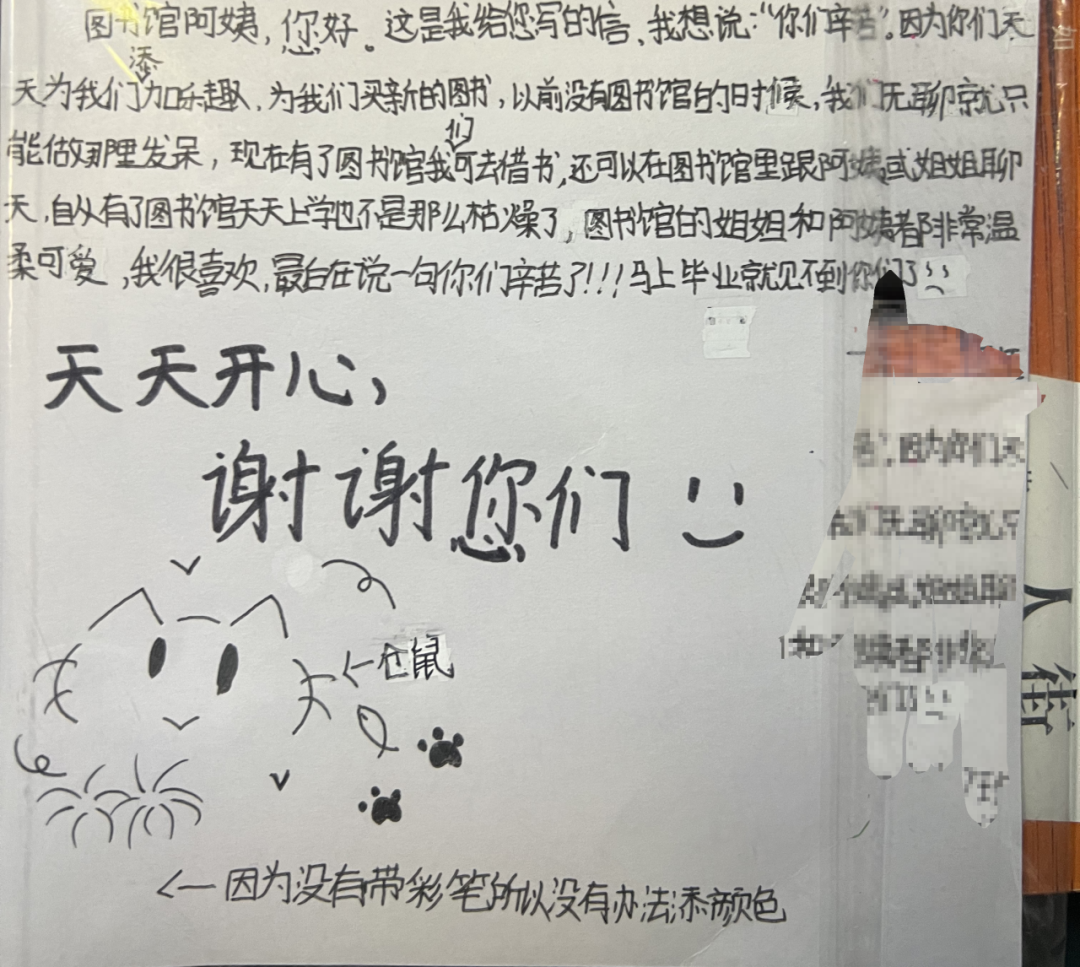 图书馆阿姨，您好。这是我给您写的信、我想说：“你们辛苦”。因为你们天
天为我们添加乐趣、为我们买新的图书，以前没有图书馆的时候，我们无聊就只
能做那里发呆，现在有了图书馆我们可去借书，还可以在图书馆里跟阿姨或姐姐聊
天，自从有了图书馆天天上学也不是那么枯燥了，图书馆的姐姐和阿姨都非常温
柔可爱，我很喜欢，最后在说一句你们辛苦了!!!马上毕业就见不到你们了
天天开心，
谢谢您们
←仓鼠
←因为没有带彩笔所以没有办法添颜色
因为你们天
人街